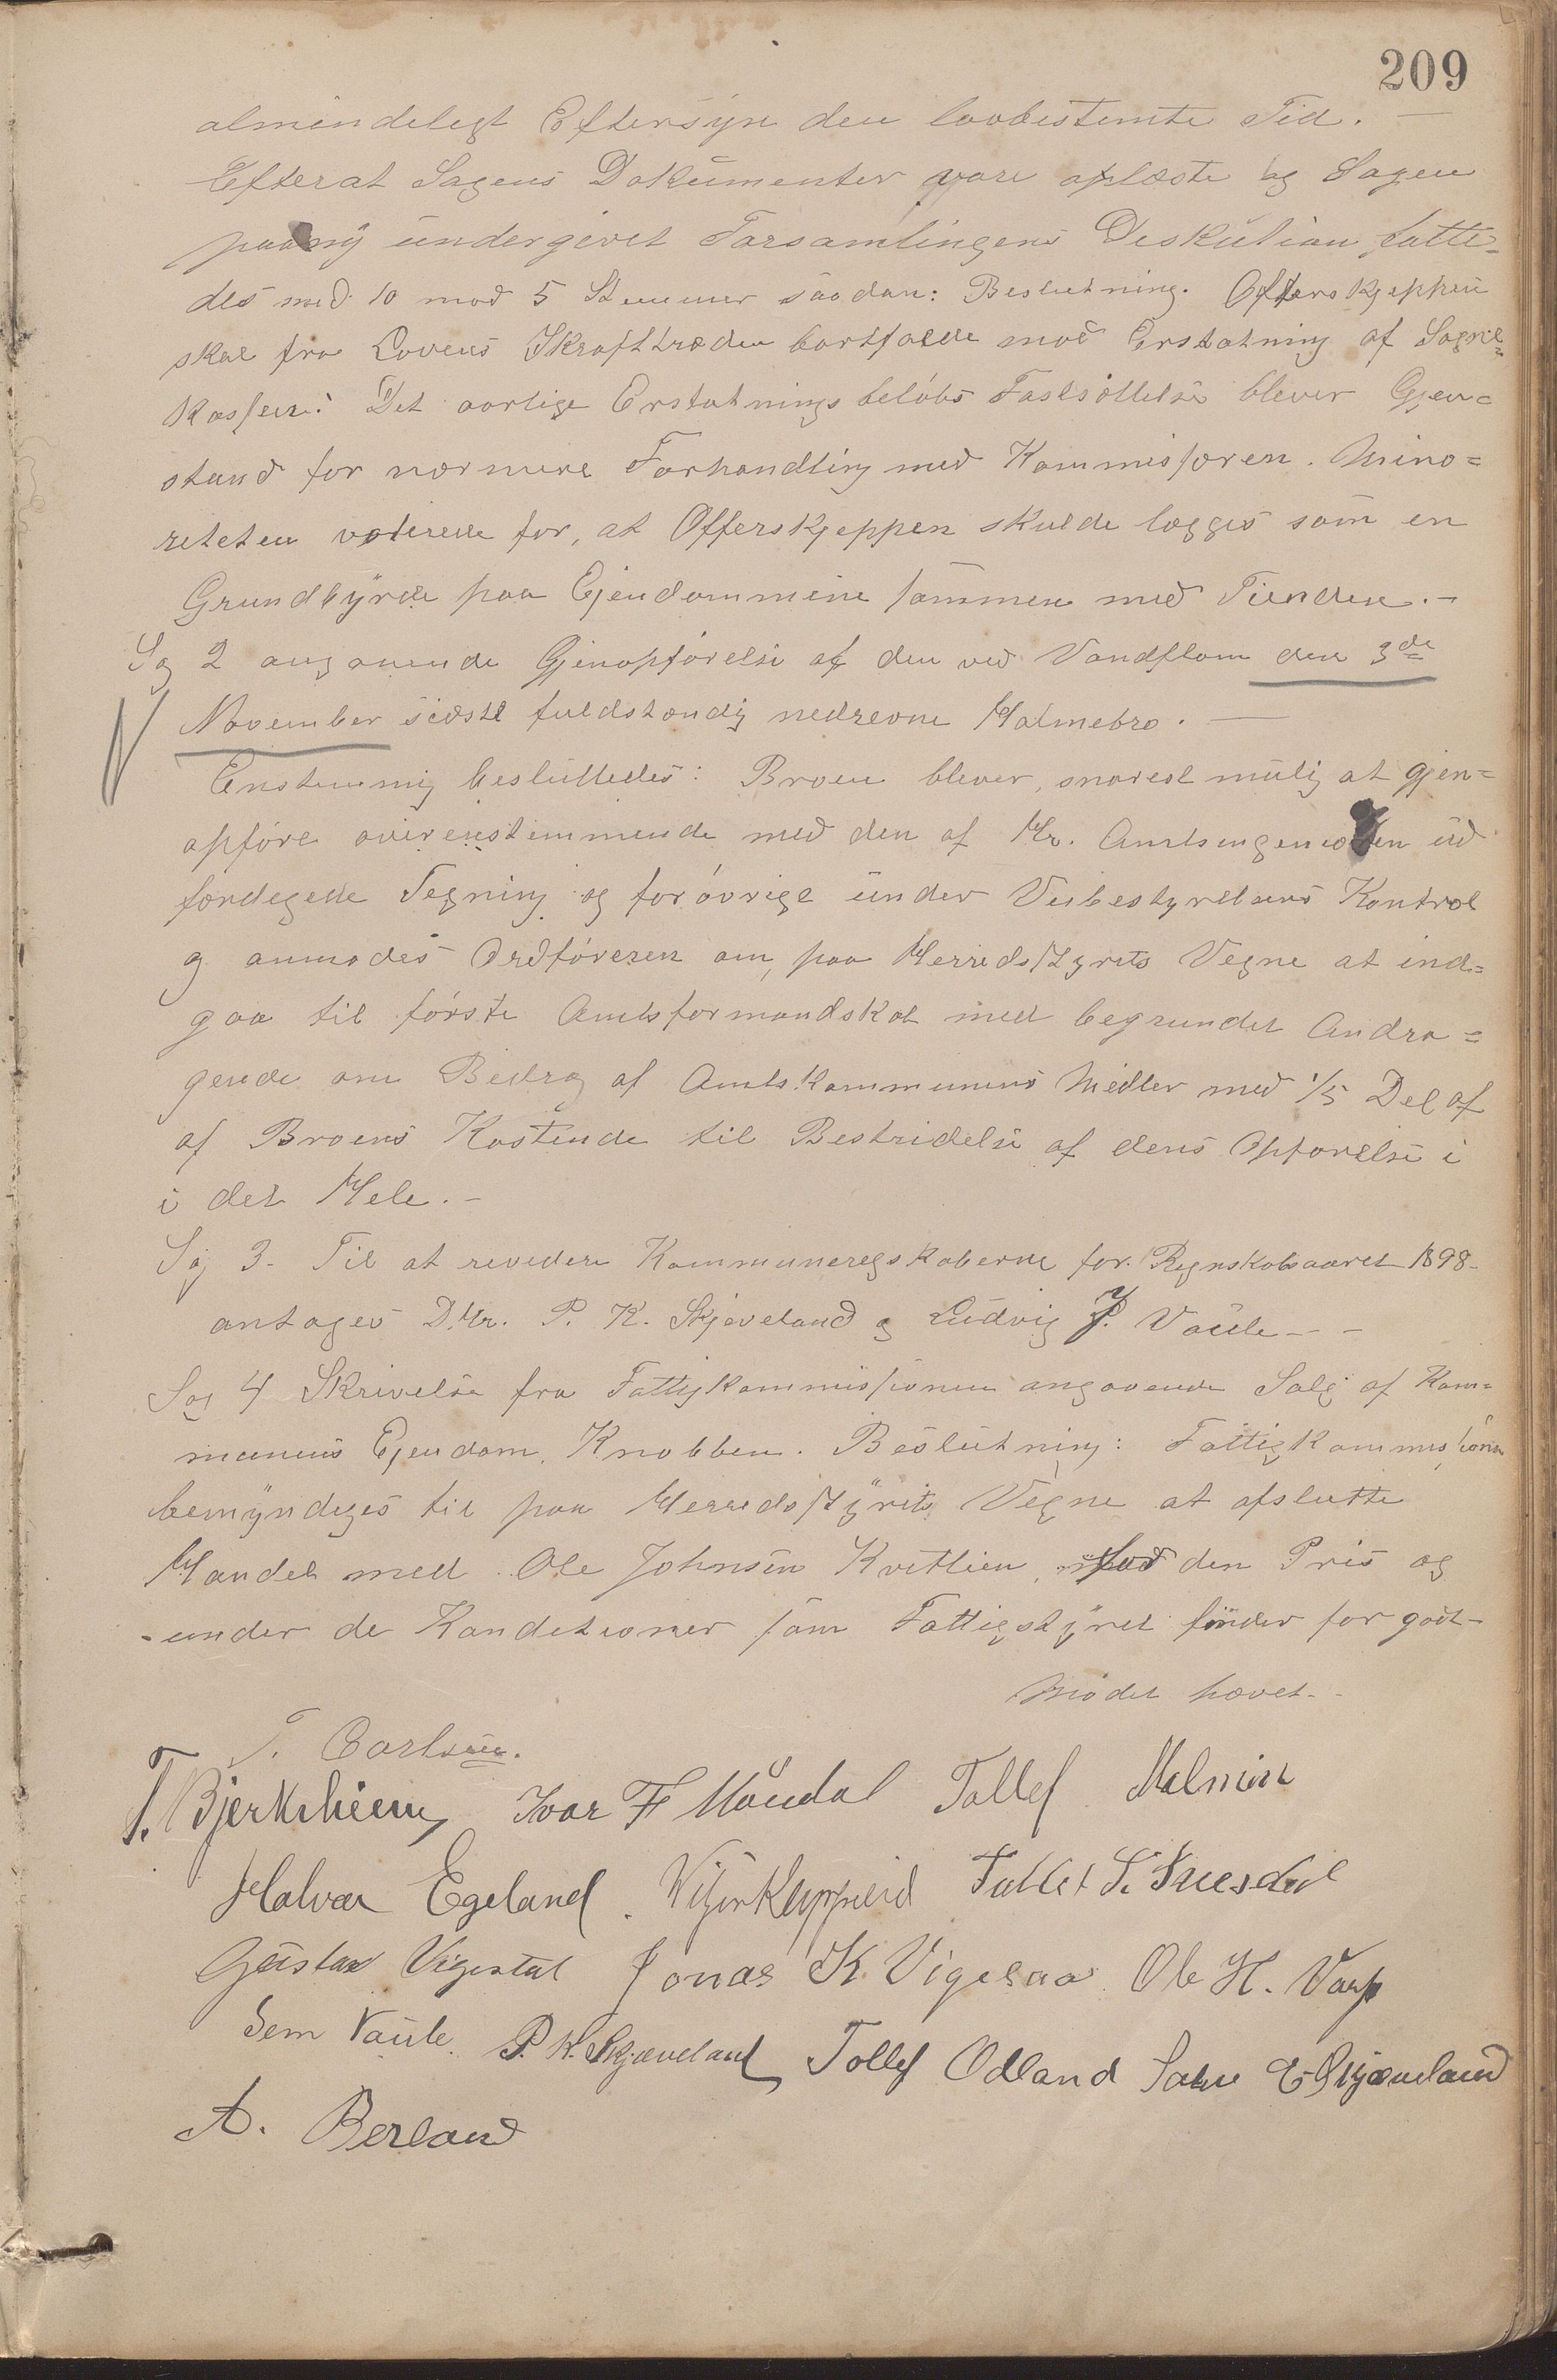 209
almindeligt Eftersyn den lovbestemte Tid. —
Efterat Sagens Dokumenter vare oplæste og Sagen
paany undergivet Forsamlingens Diskution fatte-
des med 10 mod 5 Stemmer saadan: Beslutning. Offerskjeppen
skal fra Lovens Ikrafttræden bortfalde mod Erstatning af Sogne-
kassen. Det aarlige Erstatningsbeløbs Fastsættelse bliver Gjen=
stand for nærmere Forhandling med Kommisæren. Mino=
riteten voterede for, at Offerskjeppen skulde lægges som en
Grundbyrde paa Ejendommene sammen med Tienden. -
Sag 2 angaaende Gjenopførelse af den ved Vandflom den 3de
November sidstl fuldstændig nedrevne Malmebro. —
Enstemmig besluttedes: Broen bliver, snarest mulig at gjen=
opføre overensstemmende med den af Hr. Amtsingeniøren ud
færdigede Tegning og forøvrigt under Veibestyrelsens Kontrol
og anmodes Ordføreren om, paa Herredsstyrets Vegne at ind=
gaa til første Amtsformandskab med begrundet Andra=
gende om Bidrag af Amtskommunens Midler med 1/5 Del af
af Broens Kostende til Bestridelse af dens Opførelse i
i det Hele. -
Sag 3. Til at revidere Kommuneregskaberne for Regnskabsaaret 1898
antages D.Hr. P. K. Skjæveland og Ludvig J. Vaule - -
Sag 4 Skrivelse fra Fattigkommissionen angaaende Salg af Kom=
munens Ejendom, Knobben. Beslutning: Fattigkommissionen
bemyndiges til paa Herredsstyrets Vegne at afslutte
Handel med Ole Johnsen Kvitlien, for den Pris og
under de Konditioner som Fattigstyret finder for godt -
Mødet hævet. -
T. Carlsen.
T. Bjerkreim, Ivar F Møudal Tollef Malmin
Halvar Egeland. Tollef S.
Gustav Vigestal Jonas K. Vigesaa Ole H. Varp
Sem Vaule. P. K. Skjæveland Tollef Odland E Skjæveland
A. Berland